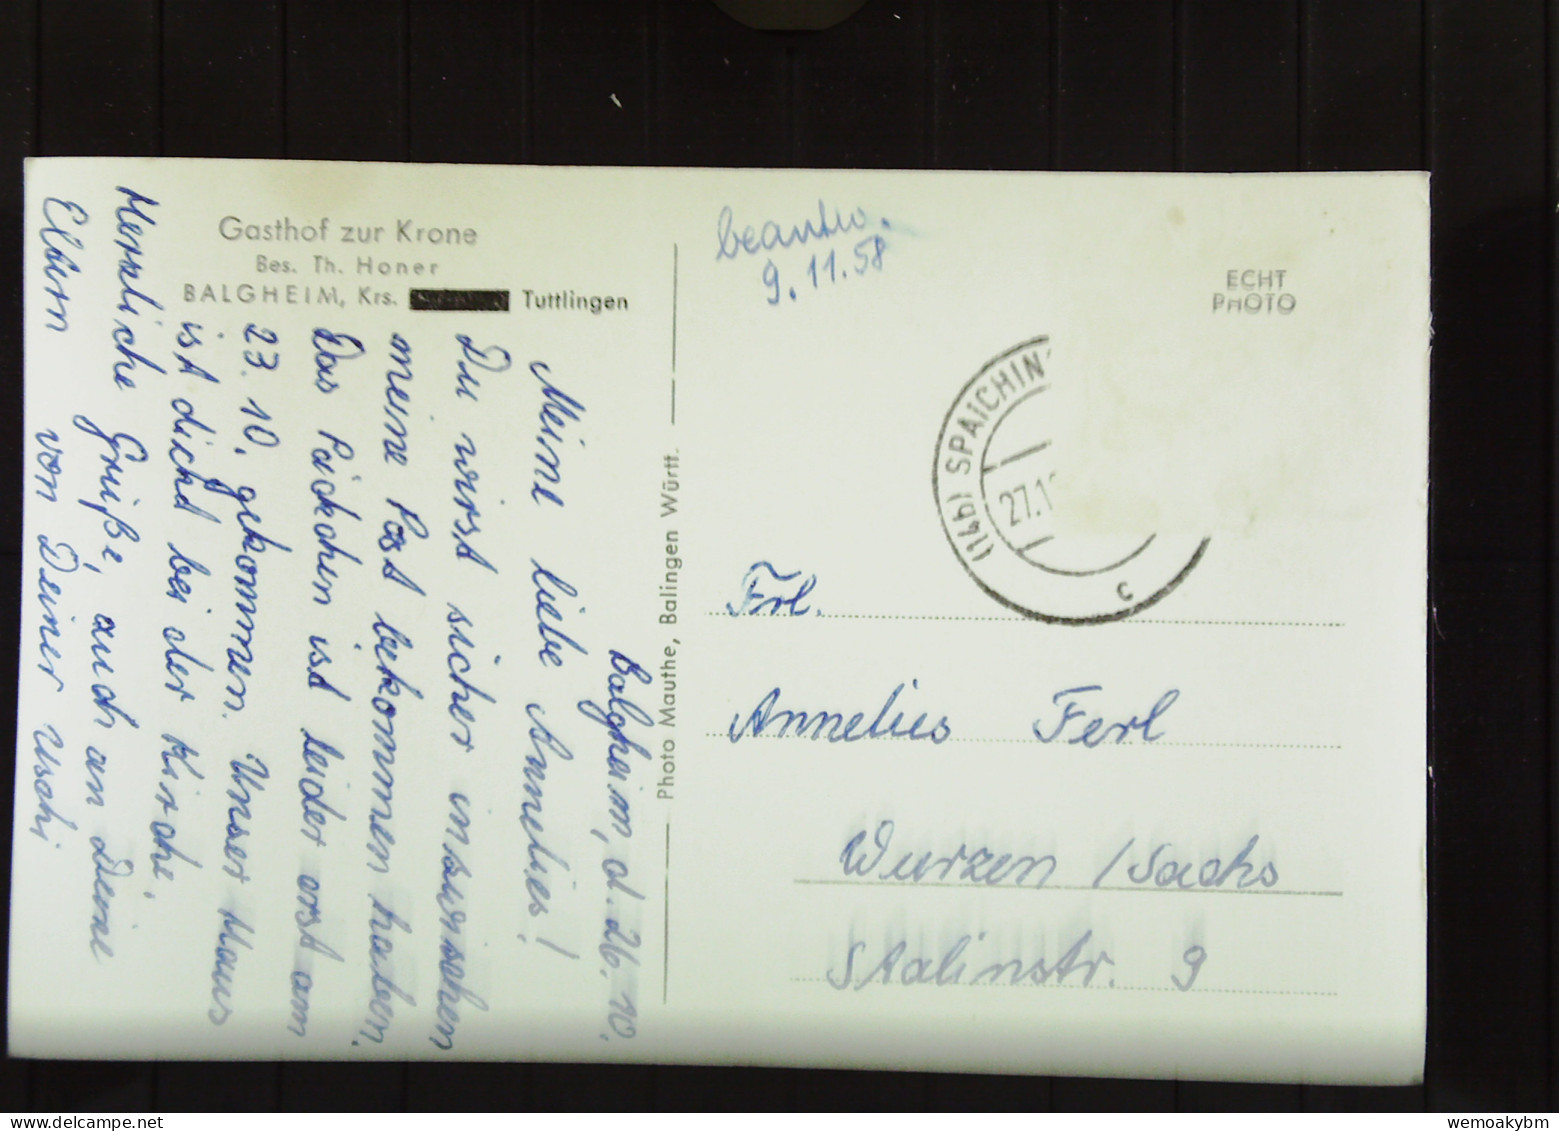 Gasthof zur Krone
Bes. Th. Honer
BALGHEIM, Krs. Tuttlingen
Balgheim, d. 26. 10.
Meine liebe Annelies!
Du wirst sicher inzwischen
meine Post bekommen haben.
Das Päckchen ist leider erst am
23. 10. gekommen. Unser Haus
ist dicht bei der Kirche.
Herzliche Grüße, auch an Deine
Eltern von Deiner Uschi
Photo Mauthe, Balingen Württ.
beantw.
9.11.58
ECHT
PHOTO
(14b) SPAICHIN
27.1
c
Frl.
Annelies Ferl
Wurzen /Sachs
Stalinstr. 9
wemoakybm